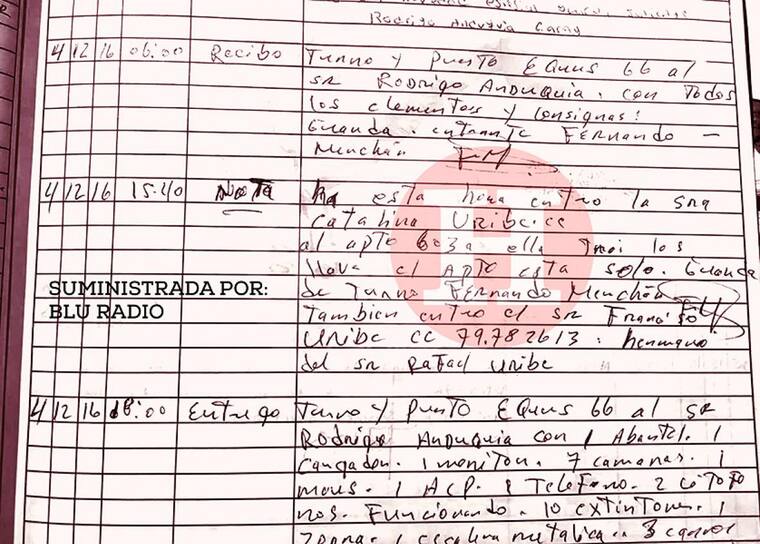 Rodrigo Anduquia Garay
4 12 16 06:00 Recibo Turno y Puesto Equus 66 al
sr Rodrigo Anduquia. con todos
los elementos y consignas:
Guarda. entrante Fernando -
Menchán FM
4 12 16 15:40 Nota ha esta hora entro la sra
Catalina Uribe cc
al apto 603a ella los
llava el Apto esta solo. Guarda
de Turno Fernando Menchán
SUMINISTRADA POR:
BLU RADIO
Tambien entro el sr Francisco
Uribe cc 79.782613: hermano
del sr Rafael Uribe
4 12 16 18:00 Entrego Turno y Puesto Equus 66 al sr
Rodrigo Anduquia con 1 Abantel. 1
Cangador. 1 monitor. 7 camaras. 1
mous. 1 ACP. 1 Telefono. 2 citofo
nos. Funcionando. 10 extintores. 1
1 escalera metalica.. 3